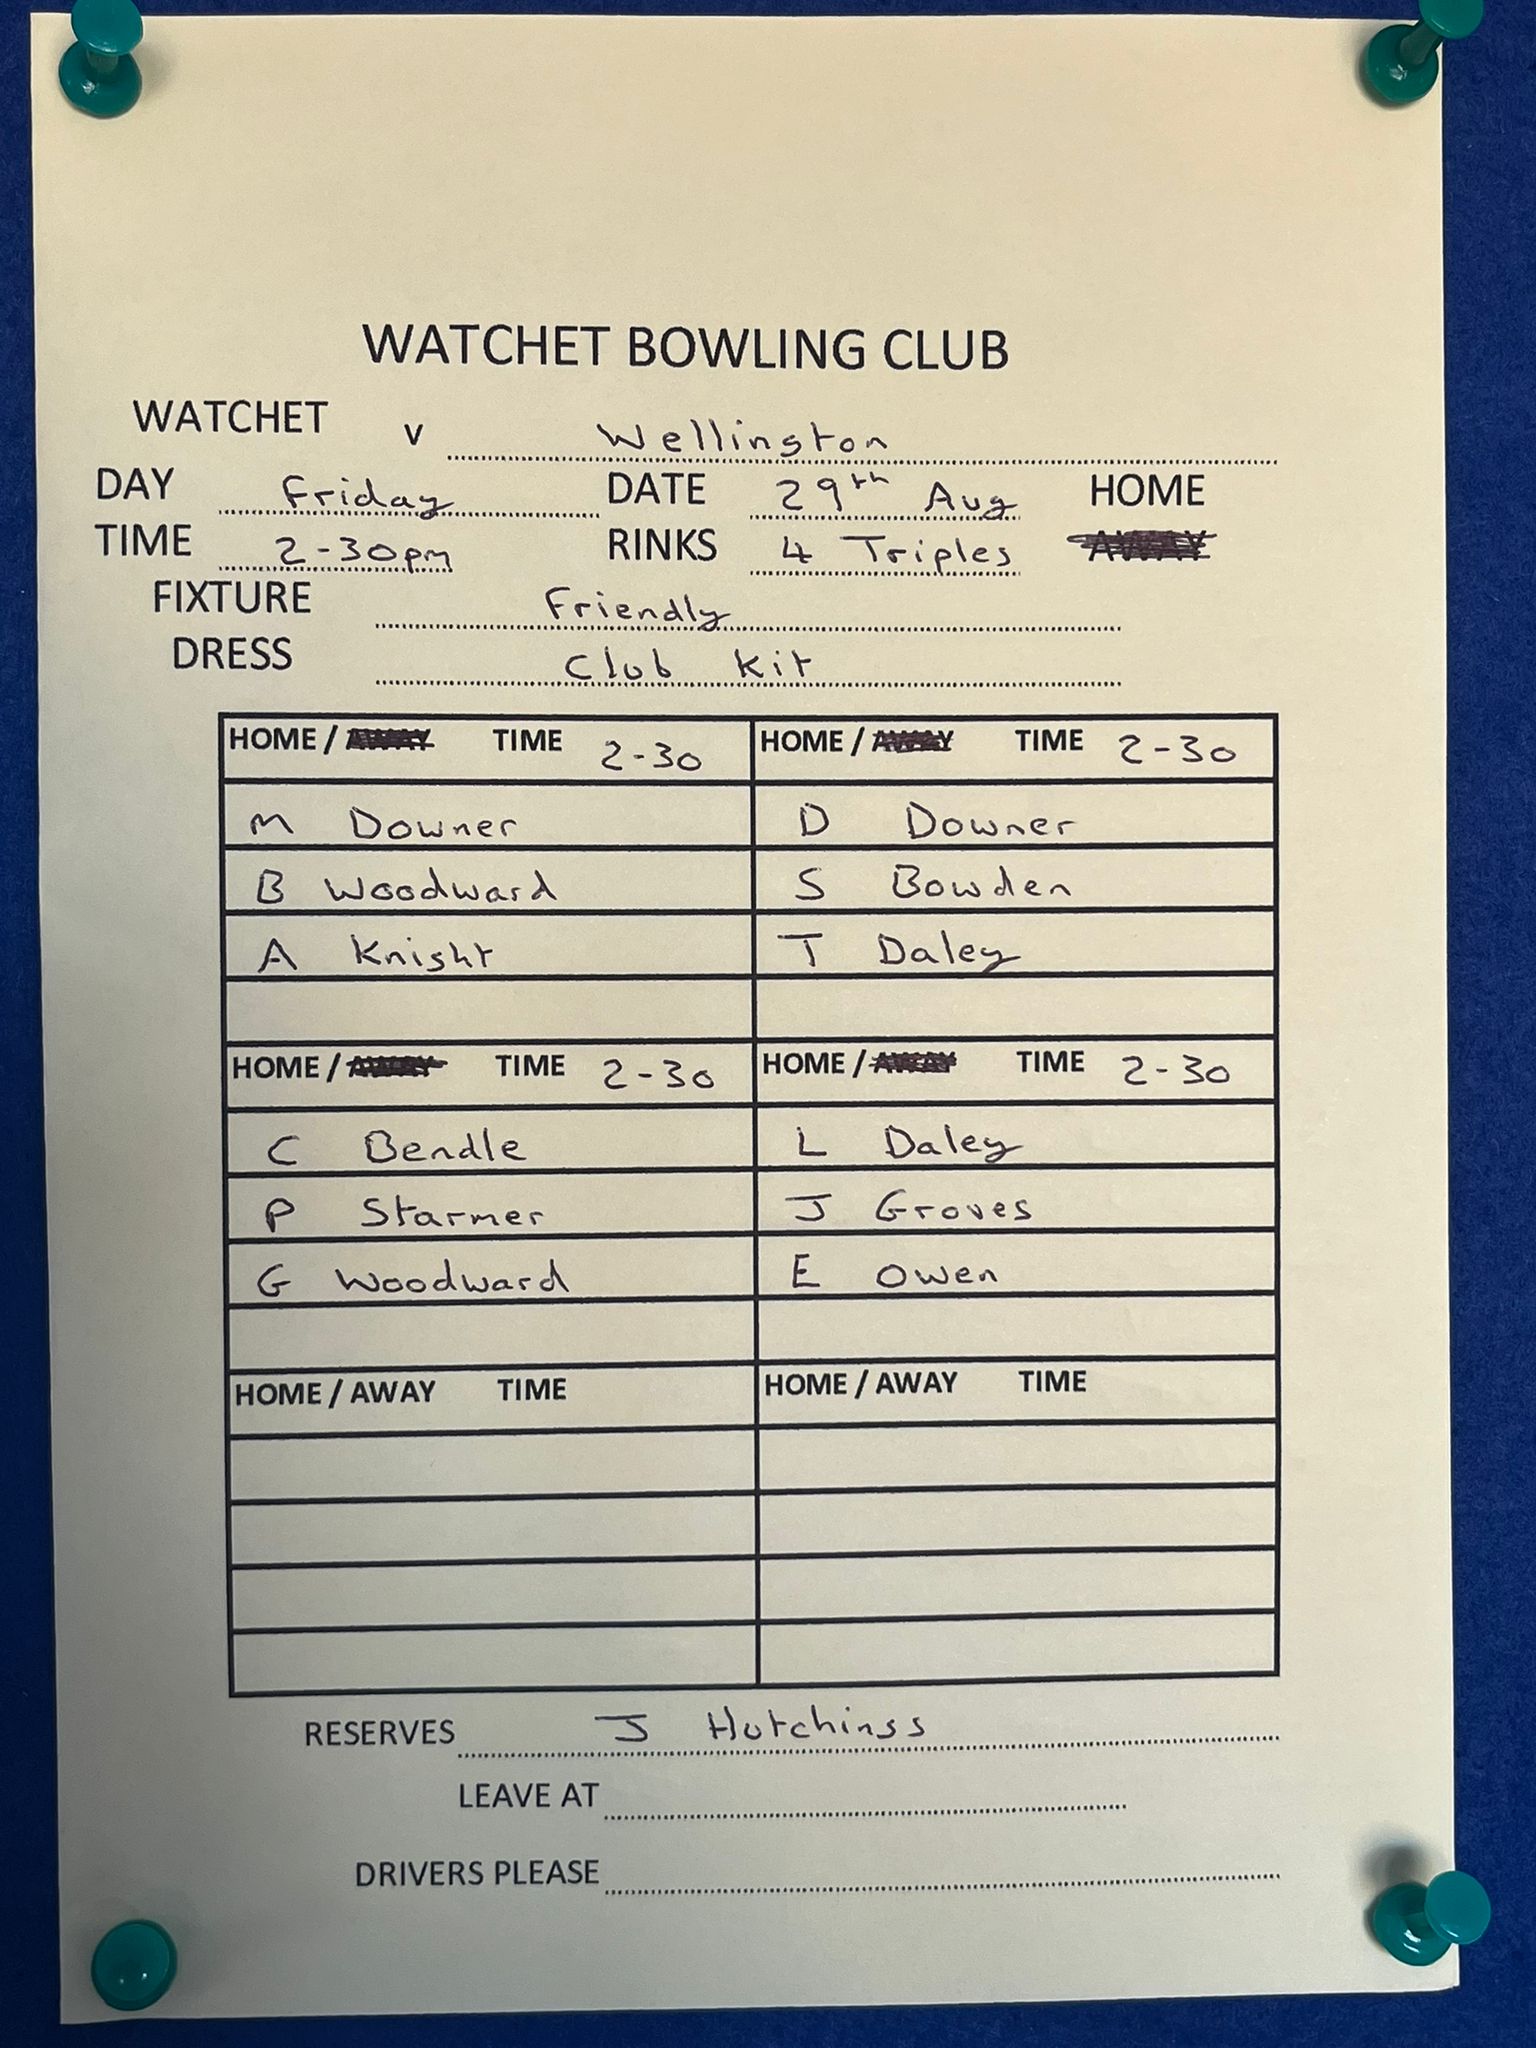 WATCHET BOWLING CLUB
WATCHET v Wellington
DAY Friday DATE 29th Aug HOME
TIME 2-30pm RINKS 4 Triples AWAY
FIXTURE Friendly
DRESS Club Kit
HOME / AWAY TIME 2-30 HOME / AWAY TIME 2-30
M Downer D Downer
B Woodward S Bowden
A Knight T Daley
HOME / AWAY TIME 2-30 HOME / AWAY TIME 2-30
C Bendle L Daley
P Starmer J Groves
G Woodward E Owen
HOME / AWAY TIME HOME / AWAY TIME
RESERVES J Hutchings
LEAVE AT
DRIVERS PLEASE